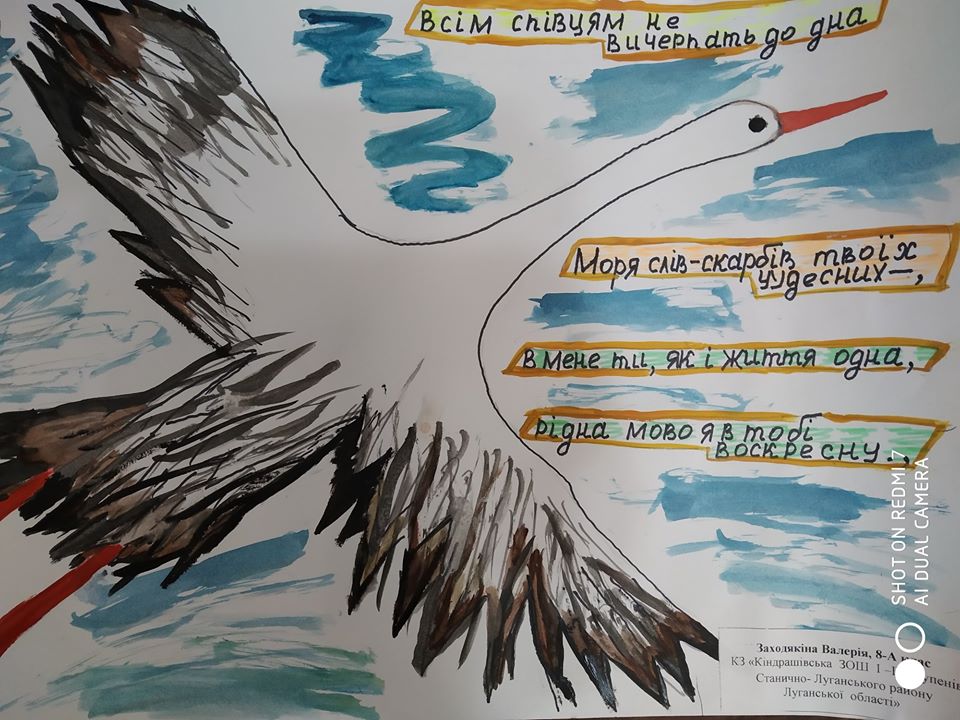 Всім співцям не
вичерпать до дна
Моря слів-скарбів твоїх
чудесних—,
в мене ти, як і життя одна,
рідна мово я в тобі
воскресну.,
SHOT ON REDMI 7
AI DUAL CAMERA
Заходякіна Валерія, 8-А
КЗ «Кіндрашівська ЗОШ І
Станично- Луганського району
Луганської області»